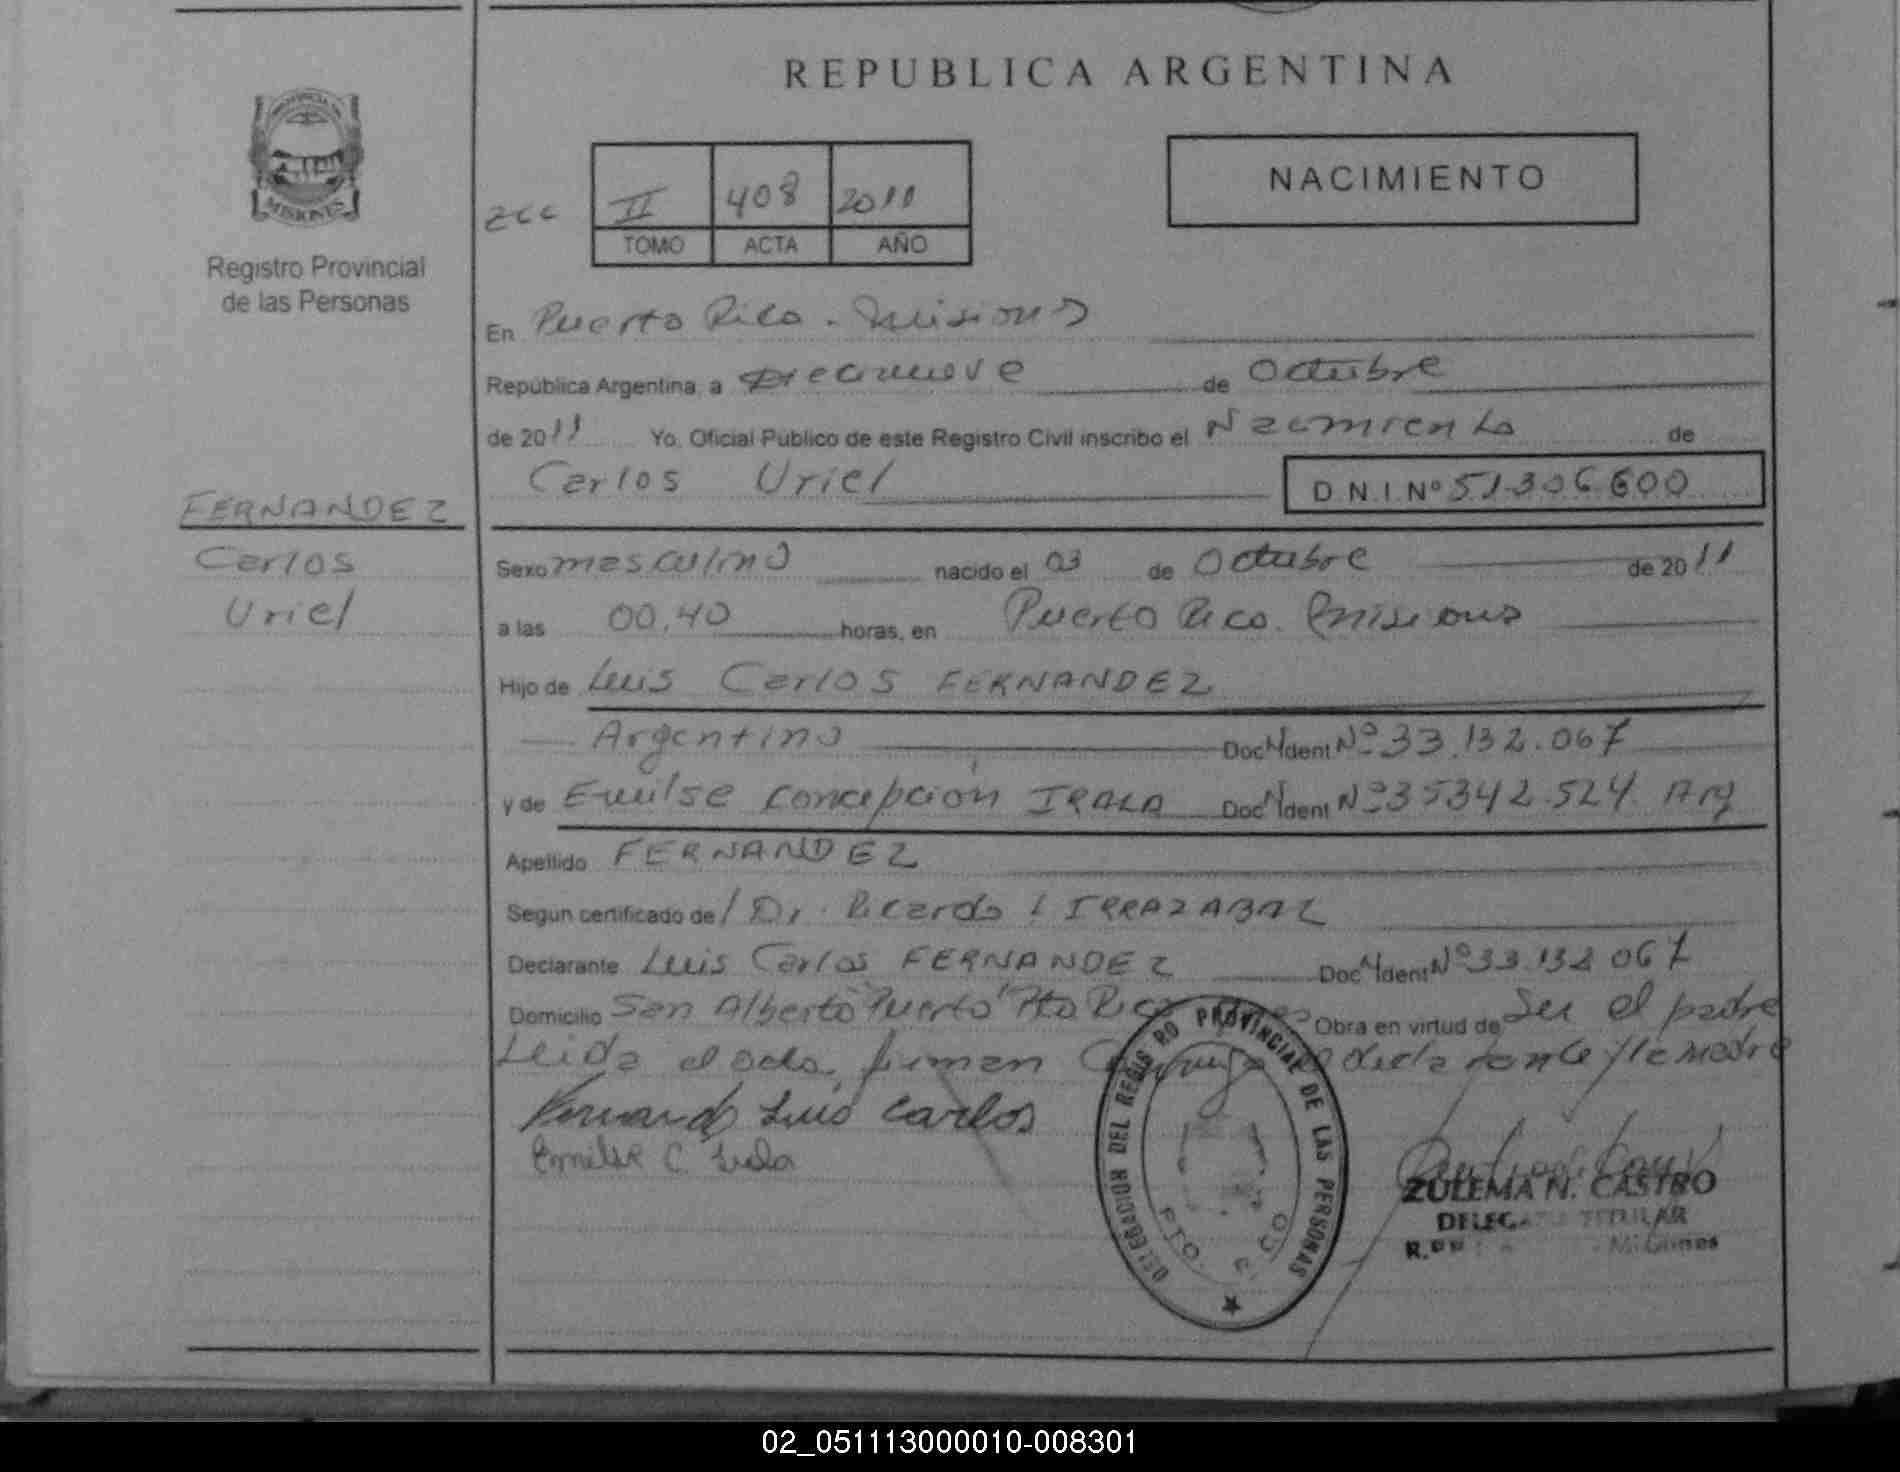 REPUBLICA ARGENTINA
PROVINCIA DE
MISIONES
Registro Provincial
de las Personas
NACIMIENTO
II 408 2011
TOMO ACTA AÑO
En Puerto Rico - Misiones
República Argentina, a Diecinueve de Octubre
de 2011 Yo, Oficial Publico de este Registro Civil inscribo el Nacimiento de
Carlos Uriel D.N.I. Nº 51.306.600
FERNANDEZ
Carlos
Uriel
Sexo masculino nacido el 03 de Octubre de 2011
a las 00.40 horas, en Puerto Rico. Misiones
Hijo de Luis Carlos FERNANDEZ
Argentino Doc. Ident Nº 33.132.067
y de Emilse Concepción IRALA Doc. Ident Nº 35342.524 Arg
Apellido FERNANDEZ
Segun certificado de Dr. Ricardo IRRAZABAL
Declarante Luis Carlos FERNANDEZ Doc. Ident Nº 33.132.067
Domicilio San Alberto Puerto Pto Rico Obra en virtud de Ser el padre
Leida el acta, firman declarante y la madre
Luis Carlos
Emilse C. Irala
DELEGACION DEL REGISTRO PROVINCIAL DE LAS PERSONAS
PTO. RICO
ZULEMA N. CASTRO
TITULAR
Misiones
02_051113000010-008301